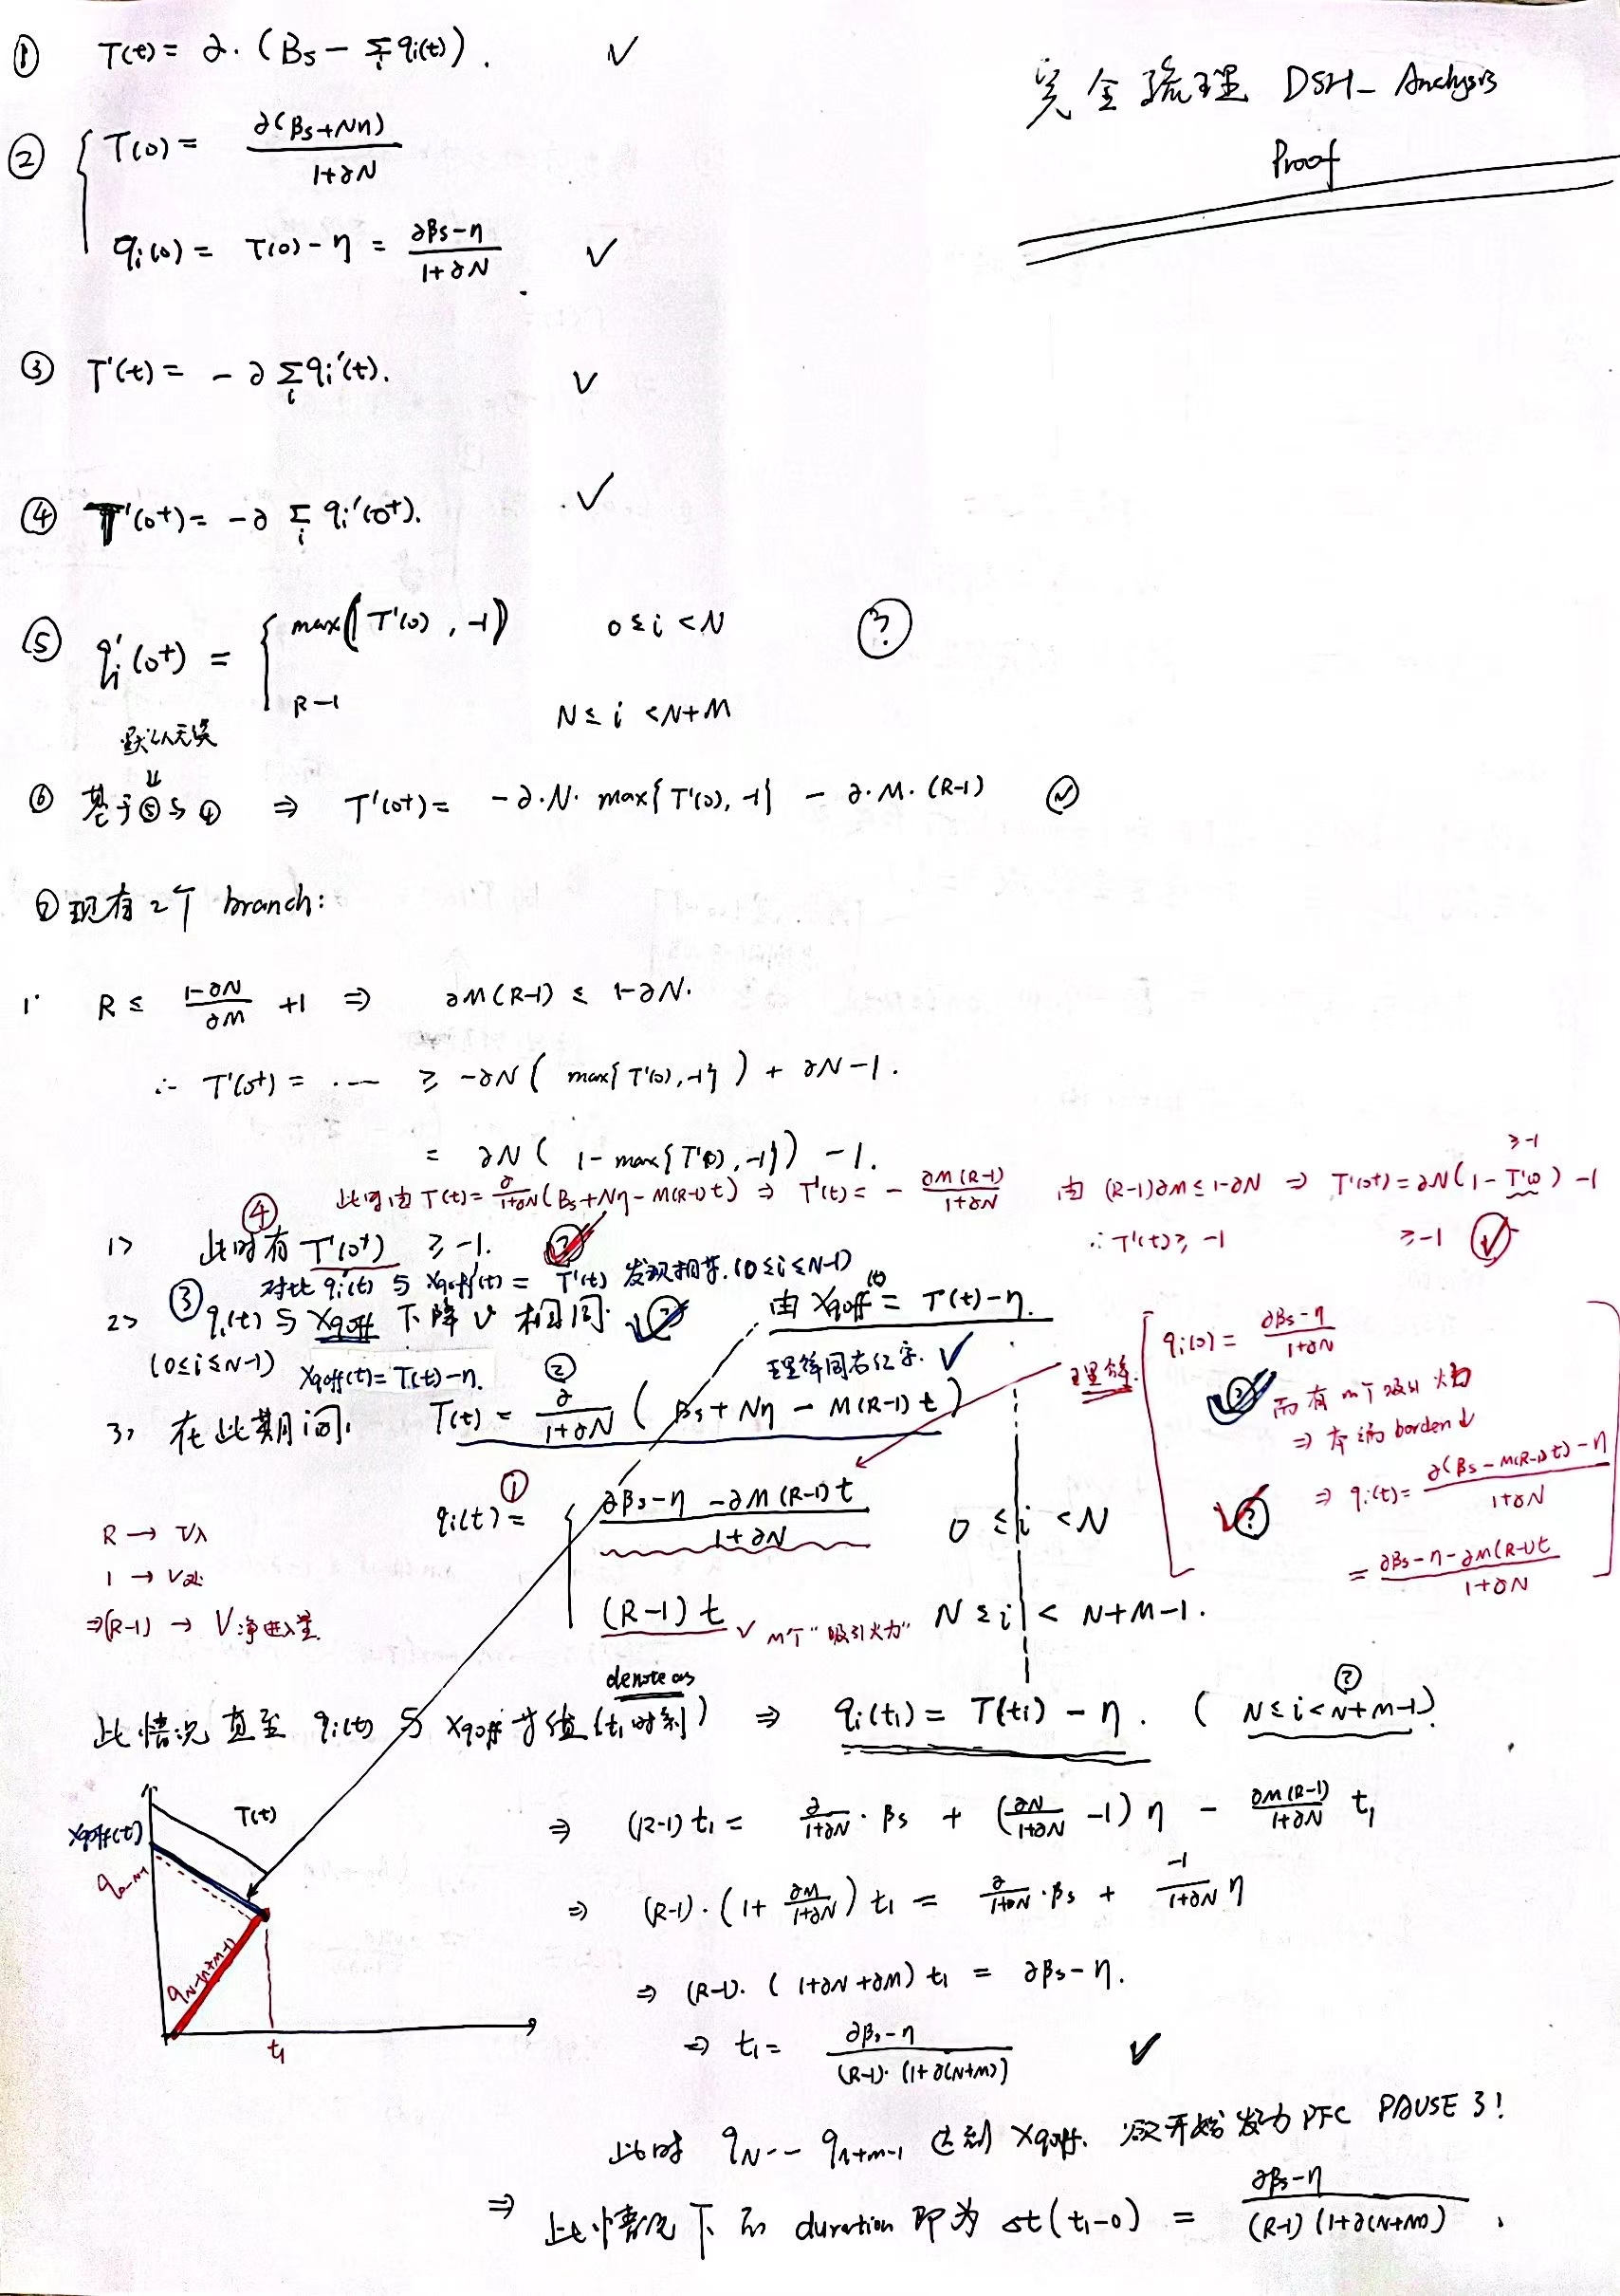 完全梳理 DSH_Analysis
Proof
① T(t) = ∂·(Bs − Σᵢ qᵢ(t)). ✓
② T(0) = ∂(βs+Nη) / (1+∂N)
qᵢ(0) = T(0) − η = (∂βs−η) / (1+∂N). ✓
③ T'(t) = −∂ Σᵢ qᵢ'(t). ✓
④ T'(0⁺) = −∂ Σᵢ qᵢ'(0⁺). ✓
⑤ qᵢ'(0⁺) = { max(T'(0), −1) 0≤i<N ?
R−1 N≤i<N+M
默认无误
⇓
⑥ 基于⑤与④ ⇒ T'(0⁺) = −∂·N·max{T'(0), −1} − ∂·M·(R−1) ✓
⑦ 现有2个 branch:
1° R ≤ (1−∂N)/(∂M) + 1 ⇒ ∂M(R−1) ≤ 1−∂N.
∴ T'(0⁺) = ··· ≥ −∂N( max{T'(0), −1} ) + ∂N − 1.
= ∂N( 1 − max{T'(0), −1} ) − 1.
此时由 T(t) = ∂/(1+∂N) (Bs+Nη−M(R−1)t) ⇒ T'(t) = − ∂M(R−1)/(1+∂N) 由 (R−1)∂M ≤ 1−∂N ⇒ T'(0⁺) = ∂N(1−T'(0)) −1
≥−1
∴ T'(t) ≥ −1 ≥ −1 ✓
1> ④ 此时有 T'(0⁺) ≥ −1. ?
对比 qᵢ'(t) 与 Xqoff'(t) = T'(t) 发现相等. (0≤i≤N−1)
2> ③ qᵢ(t) 与 Xqoff 下降 v 相同. ?
由 Xqoff(t) = T(t) − η.
(0≤i≤N−1) Xqoff(t) = T(t) − η.
理解同右红字. ✓
3> 在此期间, ② T(t) = ∂/(1+∂N) ( βs + Nη − M(R−1)t )
① qᵢ(t) = { (∂βs−η−∂M(R−1)t) / (1+∂N) 0≤i<N
(R−1)t ✓ M个“吸引火力” N≤i<N+M−1.
理解.
qᵢ(0) = (∂βs−η) / (1+∂N)
? 而有m个吸引火力
⇒ 本端 borden↓
? ⇒ qᵢ(t) = (∂(βs−M(R−1)t)−η) / (1+∂N)
= (∂βs−η−∂M(R−1)t) / (1+∂N)
R → V入
1 → V出
⇒(R−1) → V净进入量.
denote as
此情况直至 qᵢ(t) 与 Xqoff 等值 (t₁时刻) ⇒ qᵢ(t₁) = T(t₁) − η. ( N≤i<N+M−1 ). ?
⇒ (R−1)t₁ = ∂/(1+∂N) · βs + (∂N/(1+∂N) −1) η − ∂M(R−1)/(1+∂N) t₁
⇒ (R−1)·(1 + ∂M/(1+∂N)) t₁ = ∂/(1+∂N) · βs + −1/(1+∂N) η
⇒ (R−1)·(1+∂N+∂M) t₁ = ∂βs−η.
⇒ t₁ = (∂βs−η) / ((R−1)·(1+∂(N+M))) ✓
Xqoff(t)
T(t)
q₀₋ₙ₋₁
qN−(N+M−1)
t₁
此时 qN ·· qn+m−1 达到 Xqoff. 欲开始发力 PFC PAUSE 3!
⇒ 此情况下的 duration 即为 Δt(t₁−0) = (∂βs−η) / ((R−1)(1+∂(N+M))).